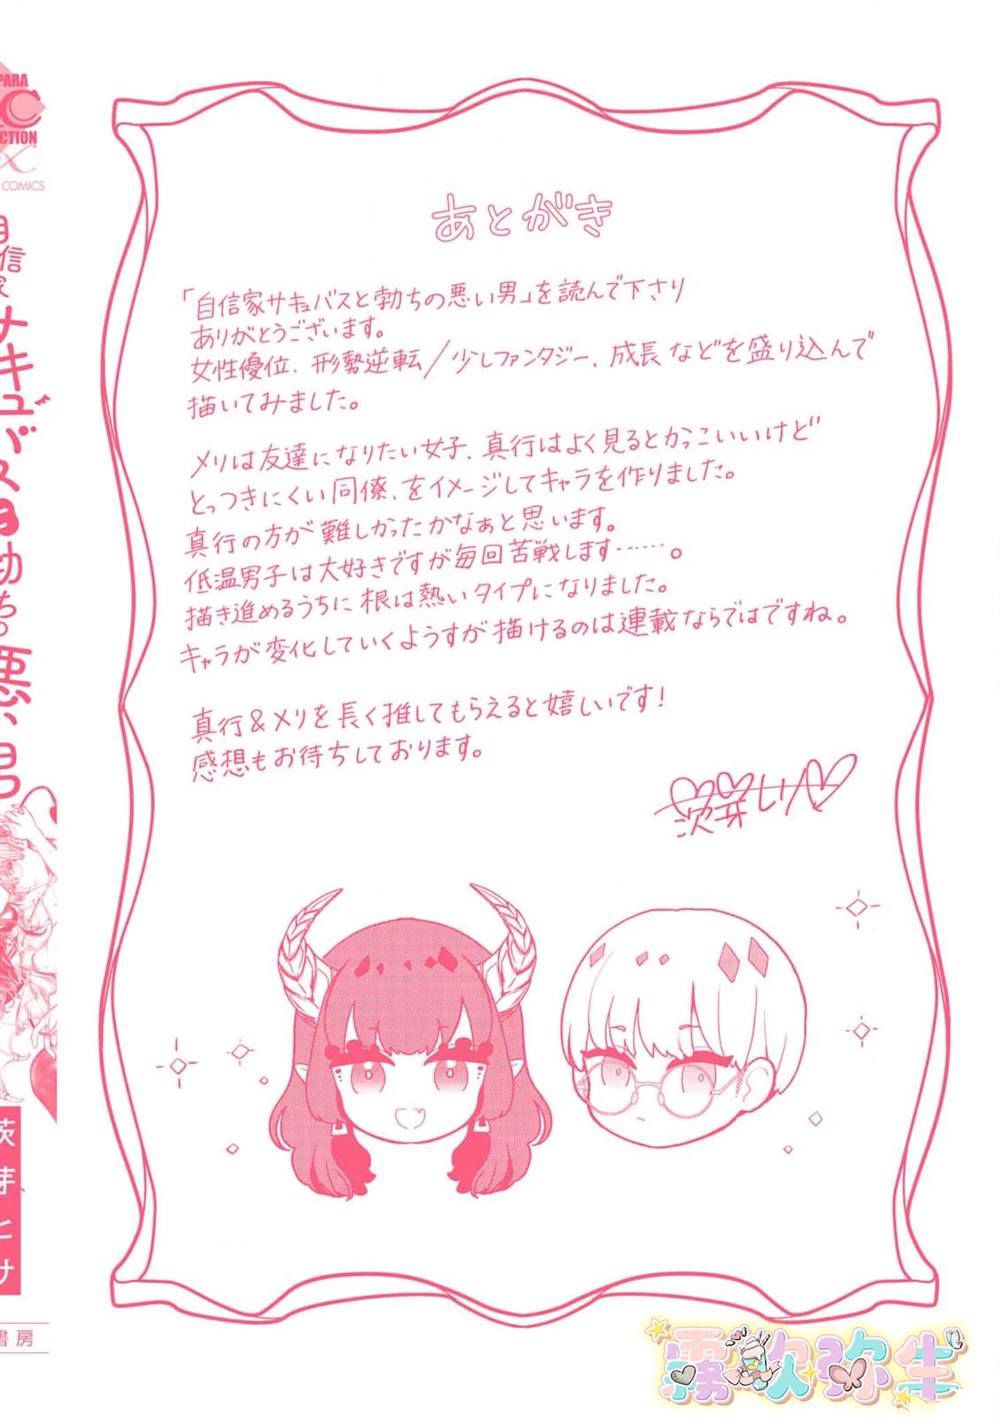 PARA
CTION
COMICS
自信家サキュバスと勃ちの悪い男
茨芽ヒサ
書房
あとがき
「自信家サキュバスと勃ちの悪い男」を読んで下さり
ありがとうございます。
女性優位、形勢逆転/少しファンタジー、成長などを盛り込んで
描いてみました。
メリは友達になりたい女子、真行はよく見るとかっこいいけど
とっつきにくい同僚、をイメージしてキャラを作りました。
真行の方が難しかったかなぁと思います。
低温男子は大好きですが毎回苦戦します……。
描き進めるうちに根は熱いタイプになりました。
キャラが変化していくようすが描けるのは連載ならではですね。
真行&メリを長く推してもらえると嬉しいです!
感想もお待ちしております。
霧吹弥生